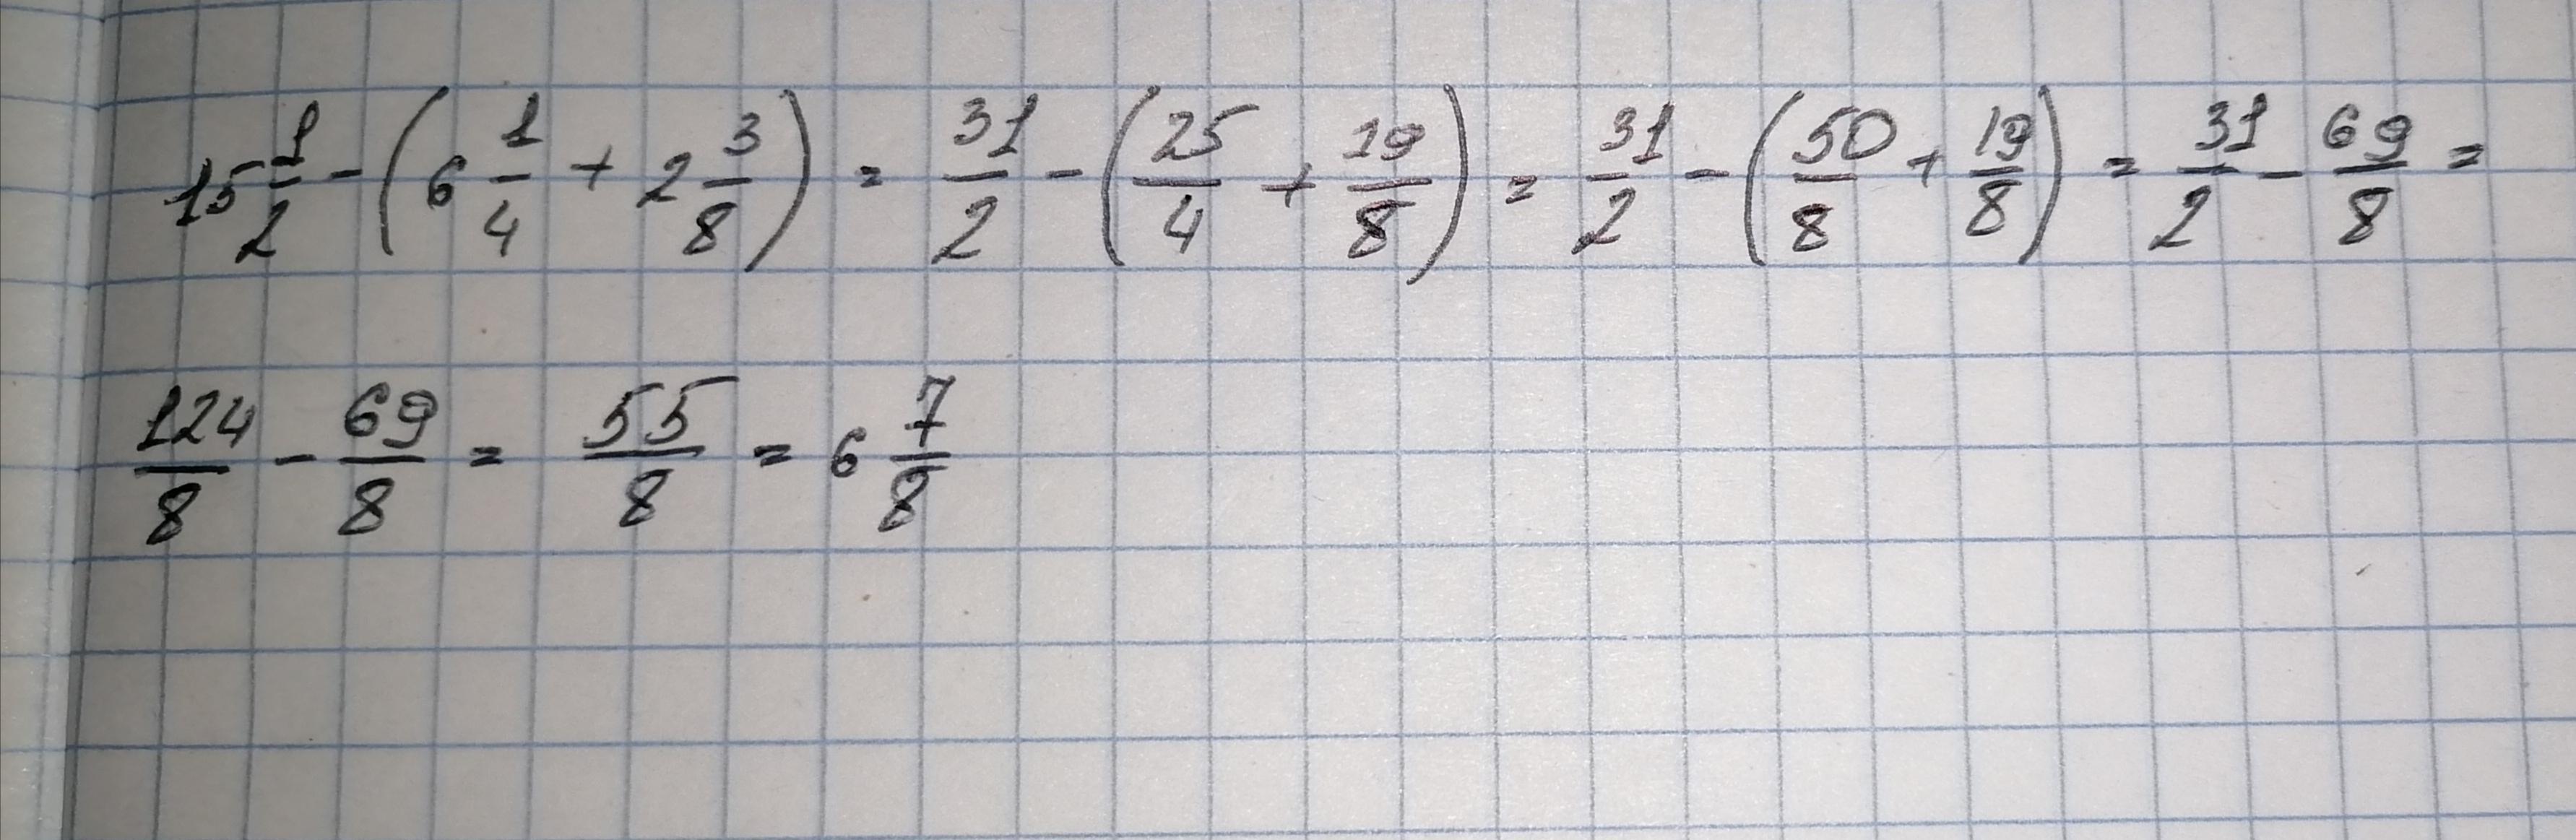 15 1/2 - (6 1/4 + 2 3/8) = 31/2 - (25/4 + 19/8) = 31/2 - (50/8 + 19/8) = 31/2 - 69/8 =
124/8 - 69/8 = 55/8 = 6 7/8